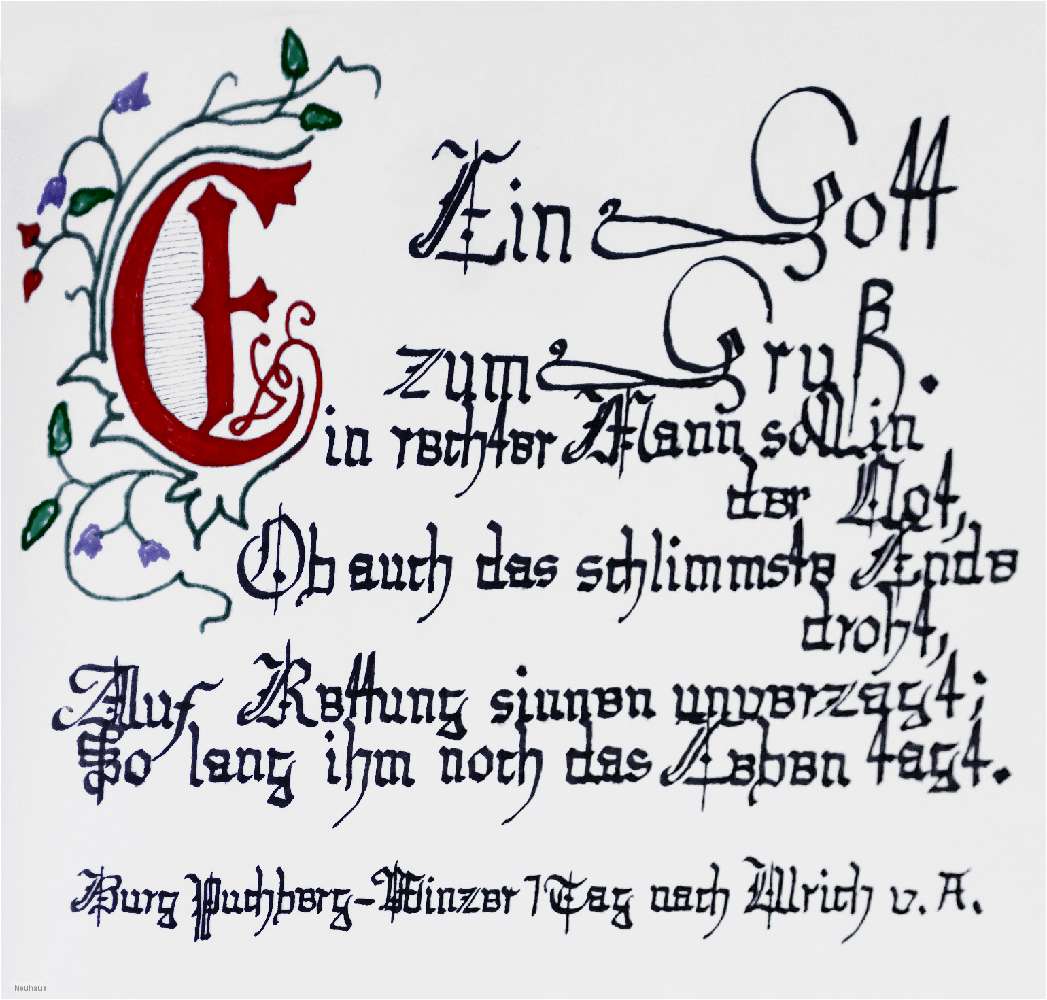 Ein Gott
zum Gruß.
Ein rechter Mann soll in
der Not,
Ob auch das schlimmste Ende
droht,
Auf Rettung sinnen unverzagt;
So lang ihm noch das Leben tagt.
Burg Puchberg-Winzer 1 Tag nach Ulrich v. A.
Neuhaus